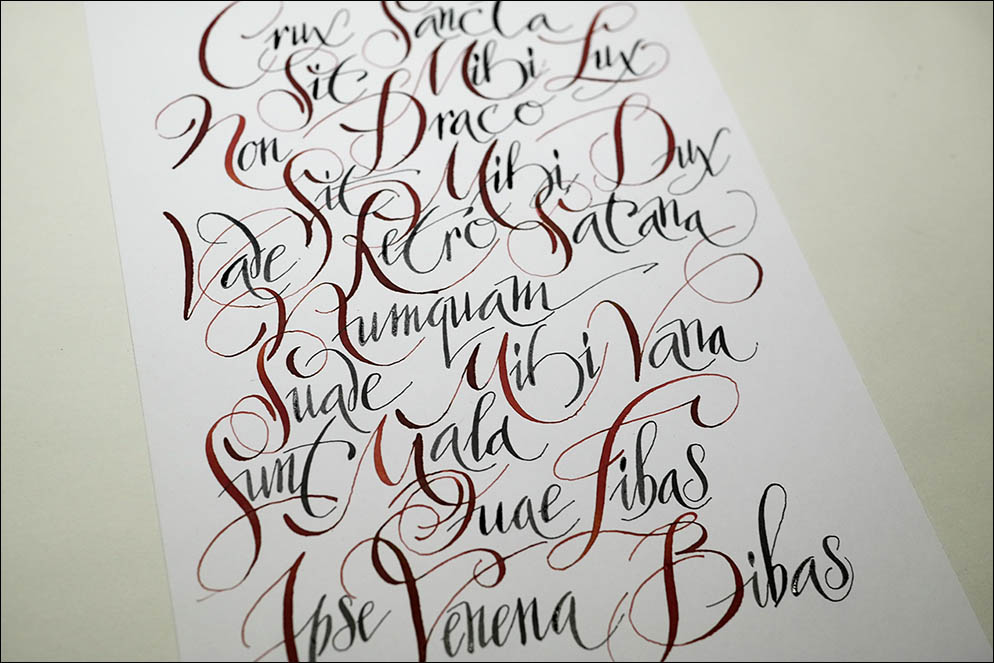 Crux Sancta
Sit Mihi Lux
Non Draco
Sit Mihi Dux
Vade Retró Satana
Numquam
Suade Mihi Vana
Sunt Mala
Quae Libas
Ipse Venena Bibas